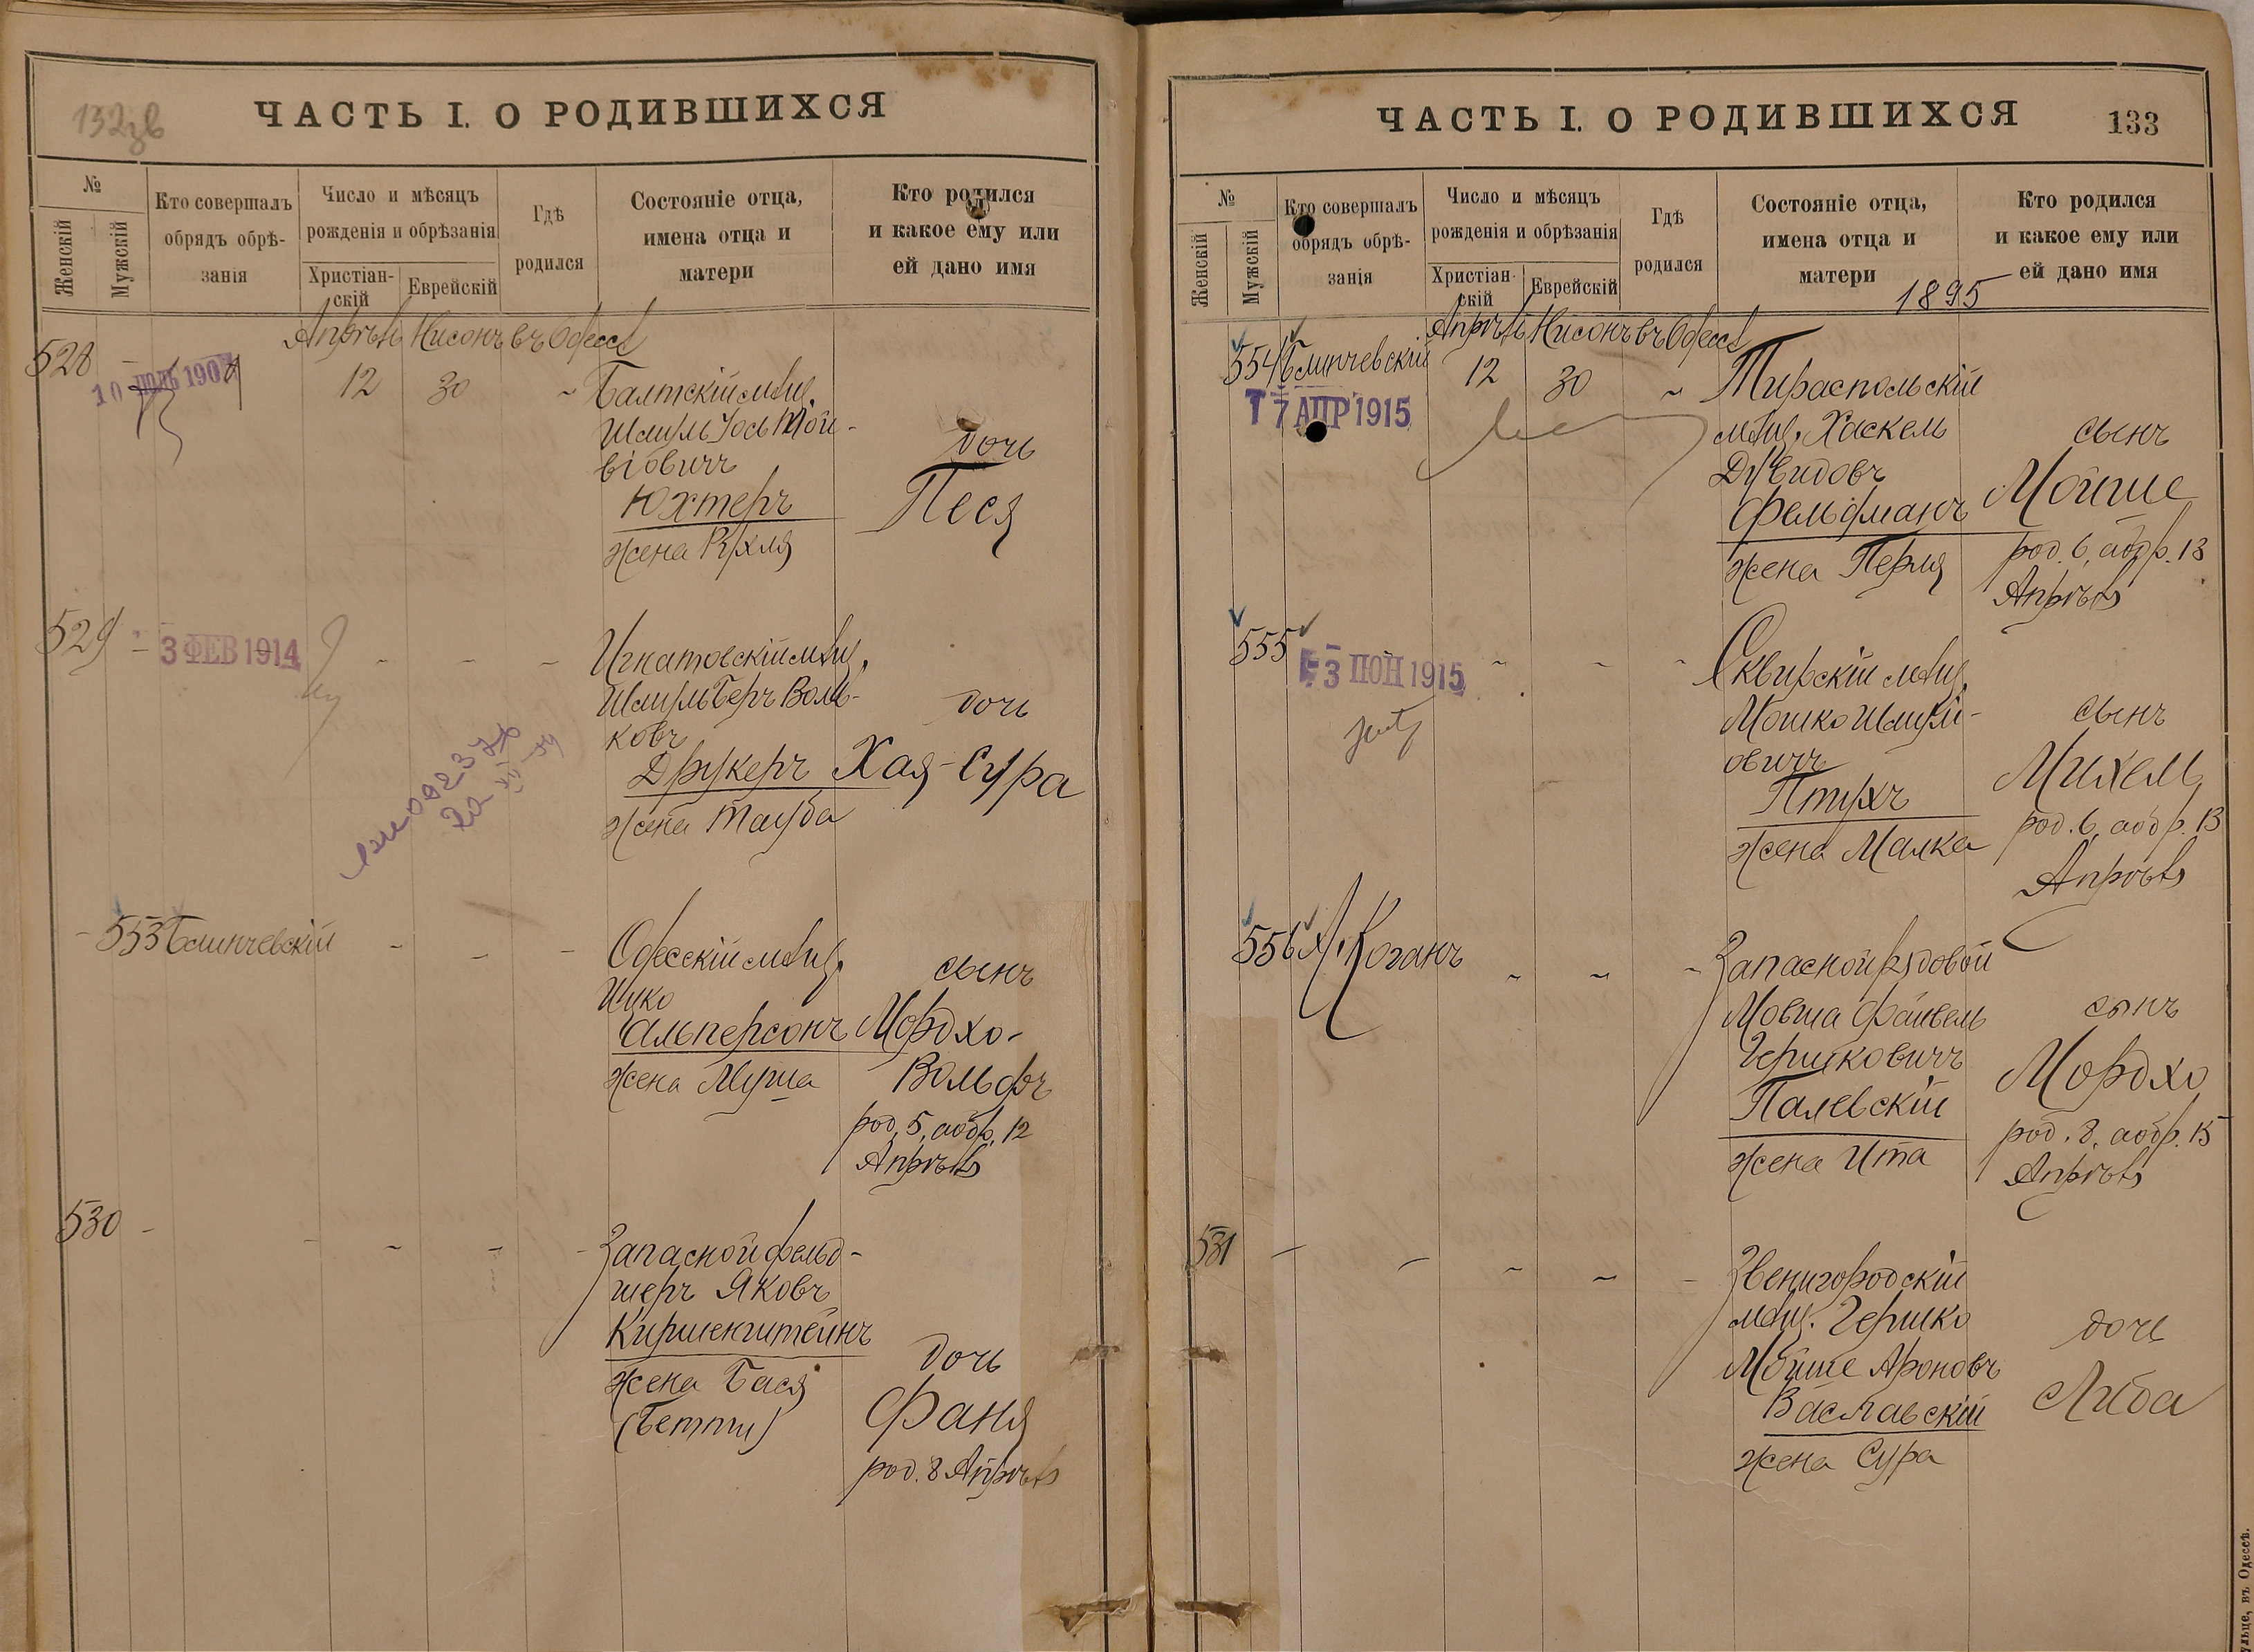 132зв
ЧАСТЬ I. О РОДИВШИХСЯ
№
Женскій
Мужскій
Кто совершалъ
обрядъ обрѣ-
занія
Число и мѣсяцъ
рожденія и обрѣзанія
Христіан-
скій
Еврейскій
Гдѣ
родился
Состояніе отца,
имена отца и
матери
Кто родился
и какое ему или
ей дано имя
Апрѣль Нисонъ въ Одессѣ
528 -
10 ІЮЛЬ 1907
12 30 ~ Балтскій мѣщ.
Шмуль Уось Мой-
віовичъ
Юхтеръ
жена Рухля
дочь
Песя
529 -
3 ФЕВ 1914
- - - Игнатовскій мѣщ.
Шмуль Беръ Воль-
ковъ
Друкеръ
жена Тауба
дочь
Хая-Сура
- 553 Блинчевскій - - - Одесскій мѣщ.
Ицко
Альперсонъ
жена Муша
сынъ
Мордхо-
Вольфъ
род. 5, аобр. 12
Апрѣль
530 - - - - - Запасной фельд-
шеръ Яковъ
Киршенштейнъ
жена Бася
(Бетти)
дочь
Фаня
род. 8 Апрѣль
ЧАСТЬ I. О РОДИВШИХСЯ
133
№
Женскій
Мужскій
Кто совершалъ
обрядъ обрѣ-
занія
Число и мѣсяцъ
рожденія и обрѣзанія
Христіан-
скій
Еврейскій
Гдѣ
родился
Состояніе отца,
имена отца и
матери
Кто родился
и какое ему или
ей дано имя
1895
Апрѣль Нисонъ въ Одессѣ
554 Блинчевскій
17 АПР 1915
12 30 ~ Тираспольскій
мѣщ. Хаскель
Дувидовъ
Фельдманъ
жена Перля
сынъ
Мойше
род. 6, аобр. 13
Апрѣль
555
-3 ІЮН 1915
- - - Сквирскій мѣщ.
Мошко Шмули-
овичъ
Птухъ
жена Малка
сынъ
Михель
род. 6, аобр. 13
Апрѣль
556 Х. Коганъ ~ ~ - Запасной рядовой
Мовша Файвель
Гершковичъ
Палевскій
жена Ита
сынъ
Мордхо
род. 8, аобр. 15
Апрѣль
531 - - ~ ~ - Звенигородскій
мѣщ. Гершко
Мойше Ароновъ
Ваславскій
жена Сура
дочь
Либа
въ Одессѣ.